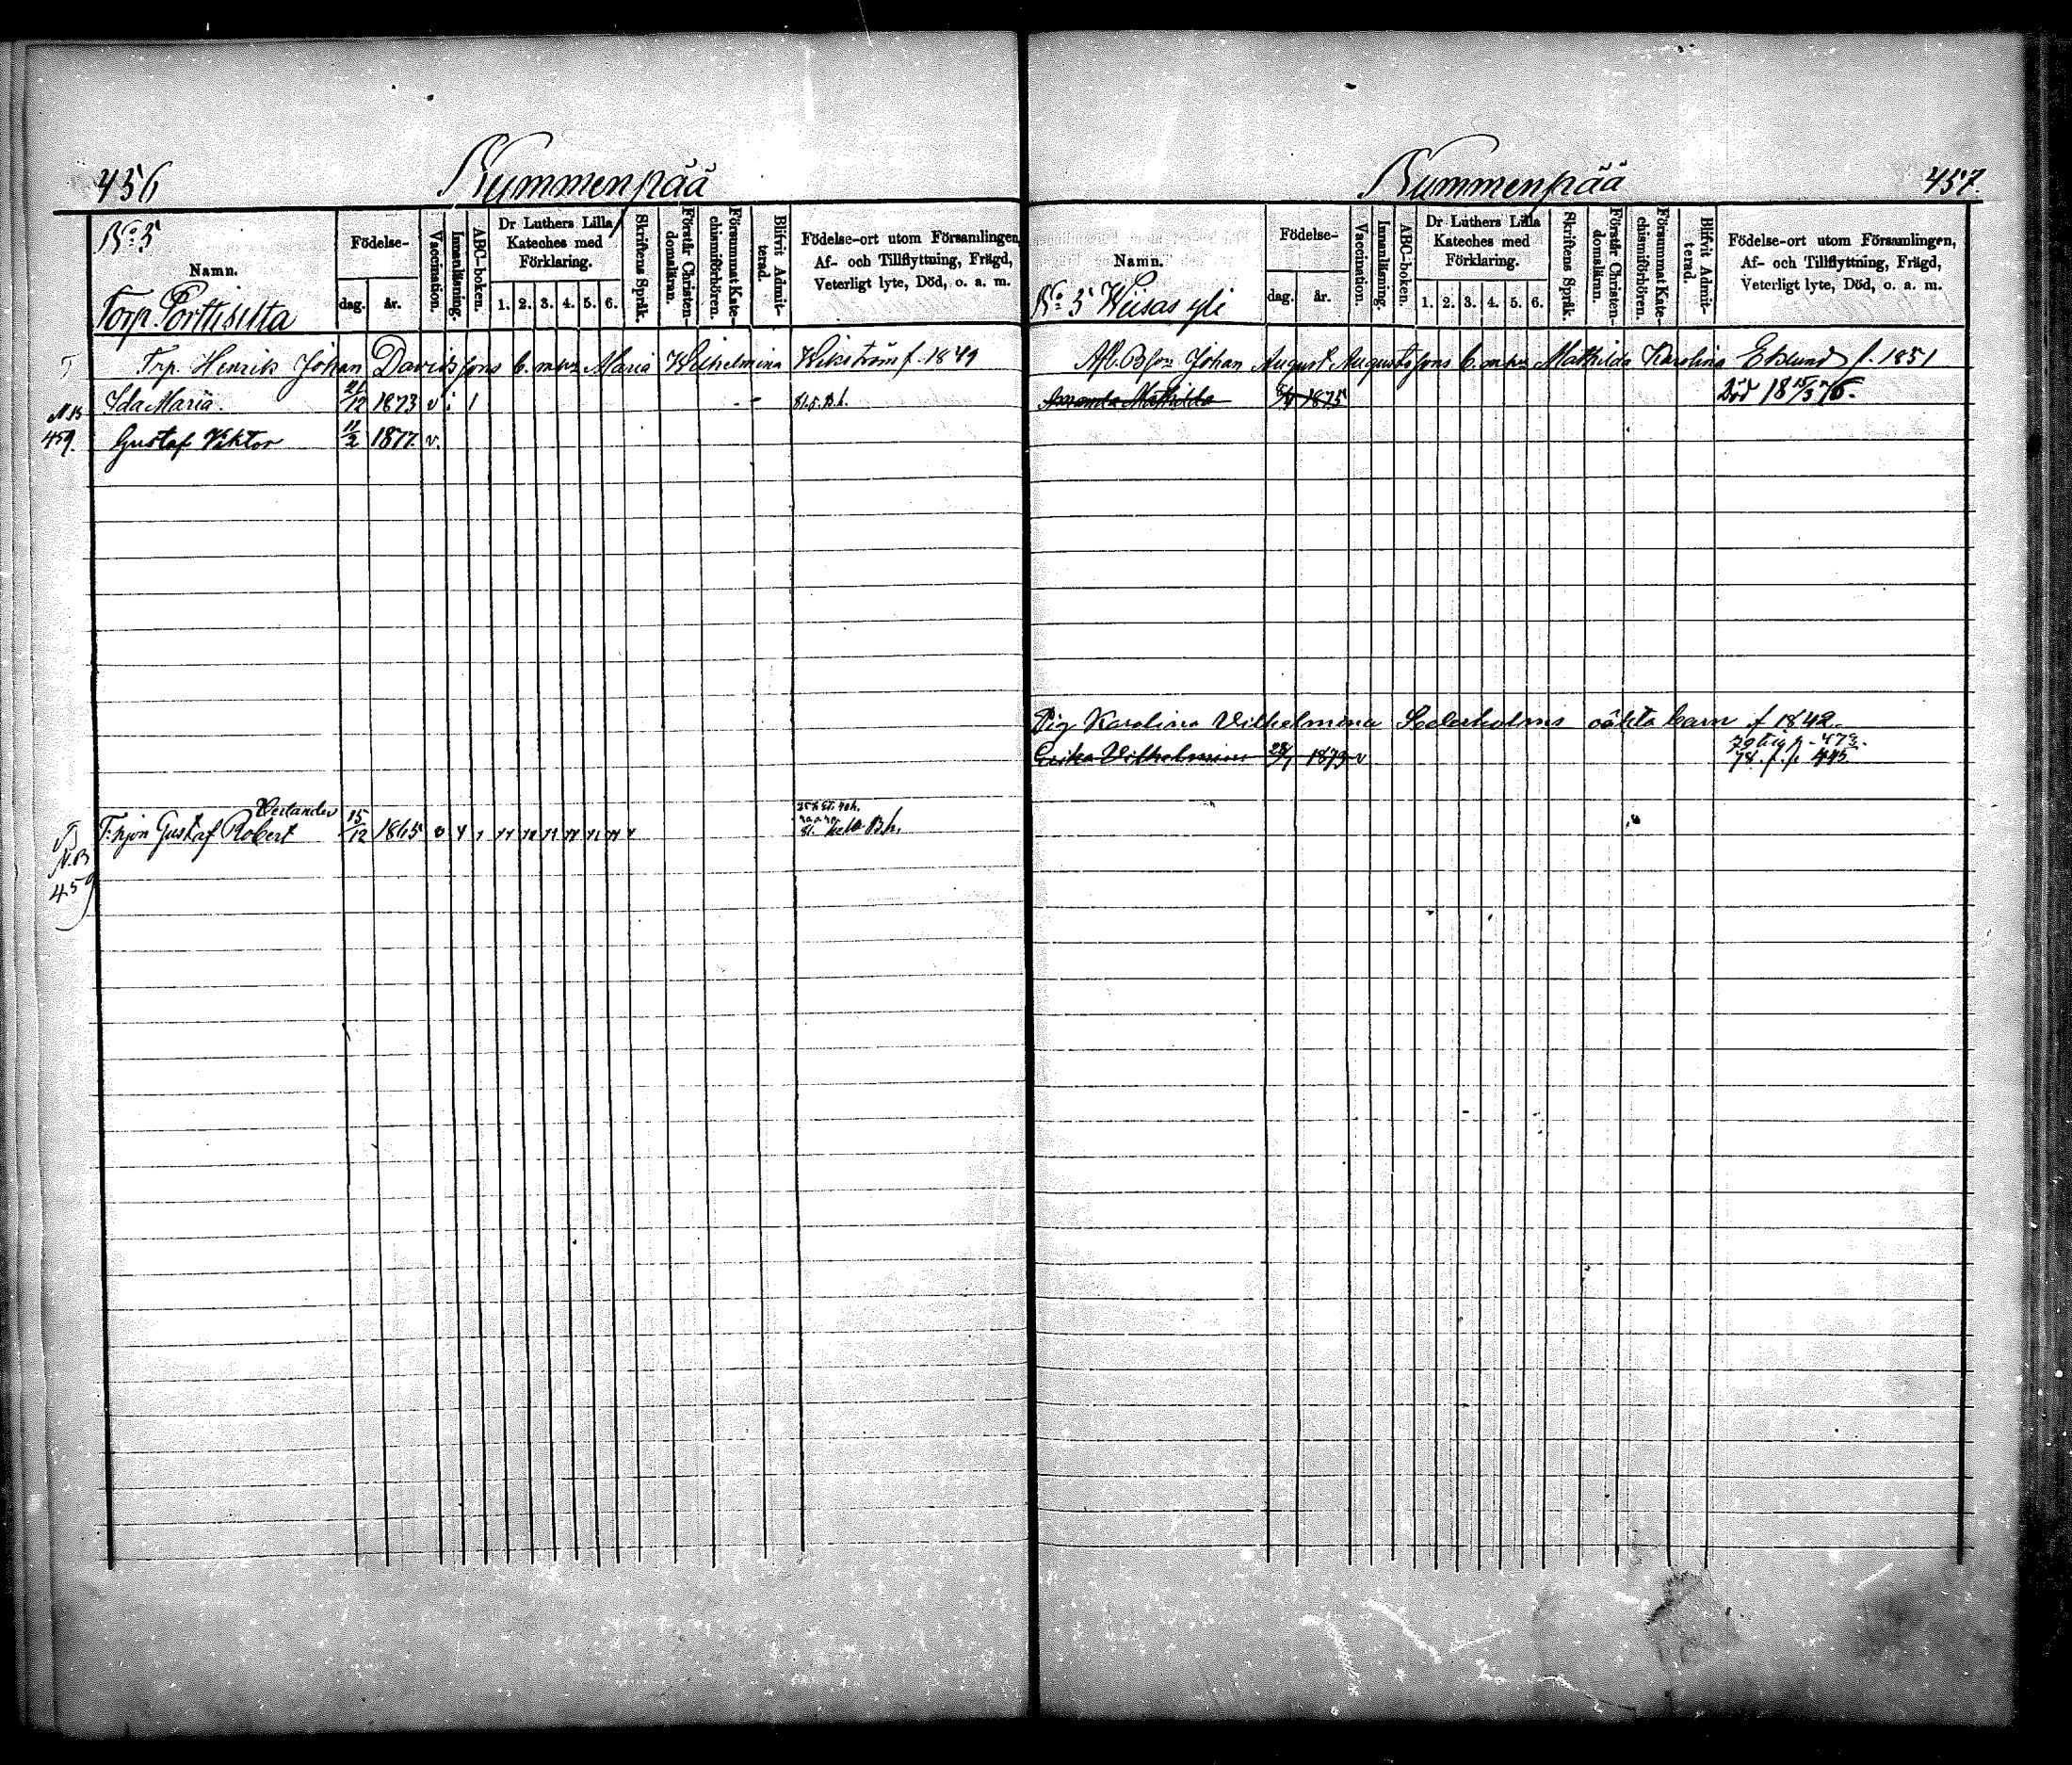 456
Kummenpää
No 5
Namn.
Torp. Porttisilta
Födelse-
dag.
år.
Vaccination.
Innanläsning.
ABC-boken.
Dr Luthers Lilla
Kateches med
Förklaring.
1. 2. 3. 4. 5. 6.
Skriftens Språk.
Förstår Christen-
domsläran.
Försummat Kate-
chismiförhören.
Blifvit Admit-
terad.
Födelse-ort utom Församlingen,
Af- och Tillflyttning, Frägd,
Veterligt lyte, Död, o. a. m.
Trp. Henrik Johan Davidssons b. m. hu Maria Wilhelmina Wikström f. 1849
N.B
Ida Maria. 21/12 1873 v i 1
459. Gustaf Viktor 11/2 1877. v.
Verlander
T:hjon Gustaf Robert 15/12 1865
N.B
459
Kummenpää
457.
Namn.
No 5 Wiisas yli
Födelse-
dag.
år.
Vaccination.
Innanläsning.
ABC-boken.
Dr Luthers Lilla
Kateches med
Förklaring.
1. 2. 3. 4. 5. 6.
Skriftens Språk.
Förstår Christen-
domsläran.
Försummat Kate-
chismiförhören.
Blifvit Admit-
terad.
Födelse-ort utom Församlingen,
Af- och Tillflyttning, Frägd,
Veterligt lyte, Död, o. a. m.
Johan August Augustssons b. m. hu Mathilda Karolina Eklund f. 1851
Amanda Mathilda 1875 Död 18 15/5 76.
Pig. Karolina Vilhelmina Sederholms oäkta barn f 1842.
Erika Vilhelmina 28/1 1873 v